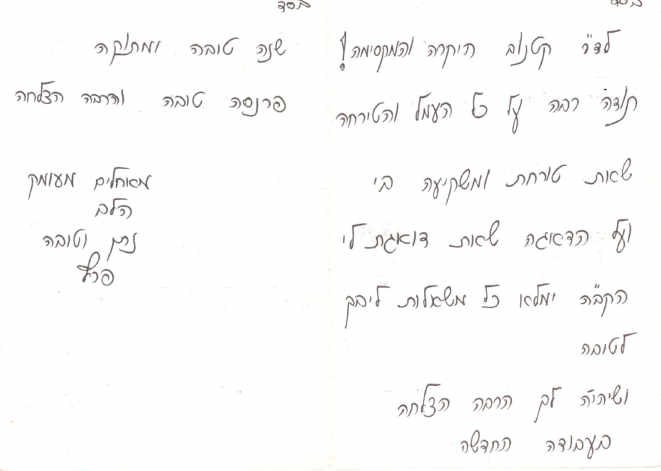 בסד
לד"ר קטנוב היקרה והמקסימה!
תודה רבה על כל העמל והטירחה
שאת טורחת ומשקיעה בי
ועל הדאגה שאת דואגת לי
הקב"ה ימלא כל משאלות ליבך
לטובה
ושיהיה לך הרבה הצלחה
בעבודה החדשה
בסד
שנה טובה ומתוקה
פרנסה טובה והרבה הצלחה
מאחלים מעומק
הלב
נתן וטובה